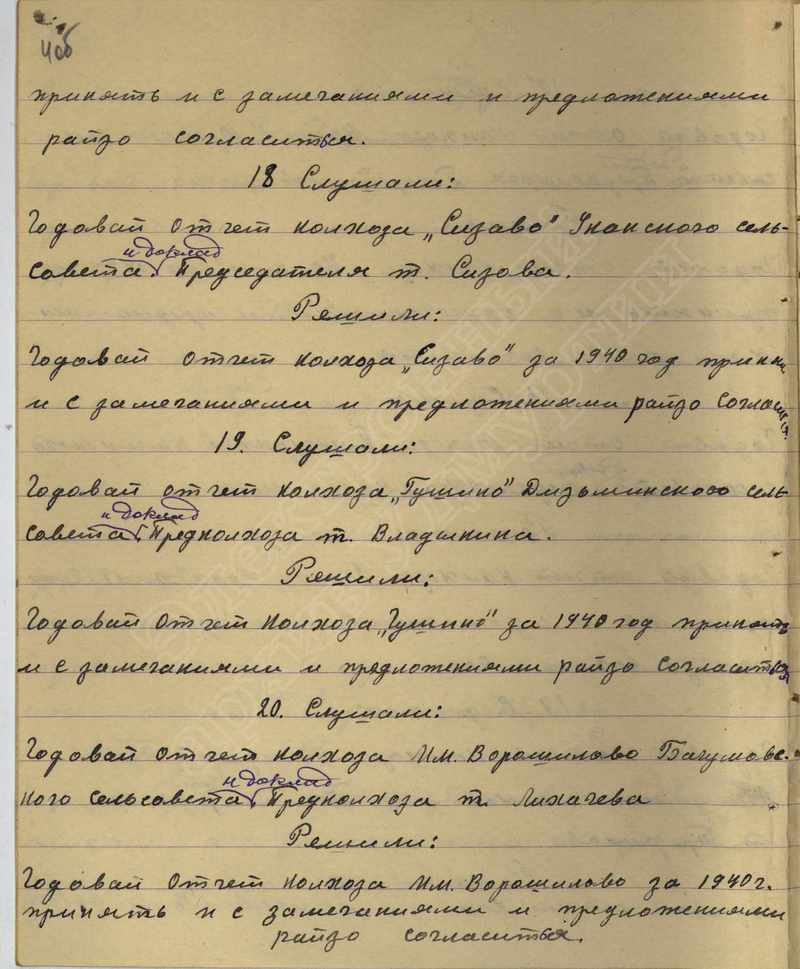 4об
принять и с замечаниями и предложениями
райзо согласиться.
18 Слушали:
Годовай отчет колхоза „Сизаво" Уканского сель-
и доклад
Совета Председателя т. Сизова.
Решили:
Годовай отчет колхоза „Сизаво" за 1940 год приня
и с замечаниями и предложениями райзо согласиться.
19. Слушали:
Годовай отчет колхоза „Гушино" Дизьминского сель-
и доклад
Совета Предколхоза т. Владыкина.
Решили:
Годовай отчет колхоза „Гушино" за 1940 год принять
и с замечаниями и предложениями райзо согласиться
20. Слушали:
Годовай отчет колхоза Им. Ворошилово Бачумовс-
и доклад
кого сельсовета Предколхоза т. Лихачева
Решили:
Годовай отчет колхоза Им. Ворошилово за 1940г.
принять и с замечаниями и предложениями
райзо согласиться.